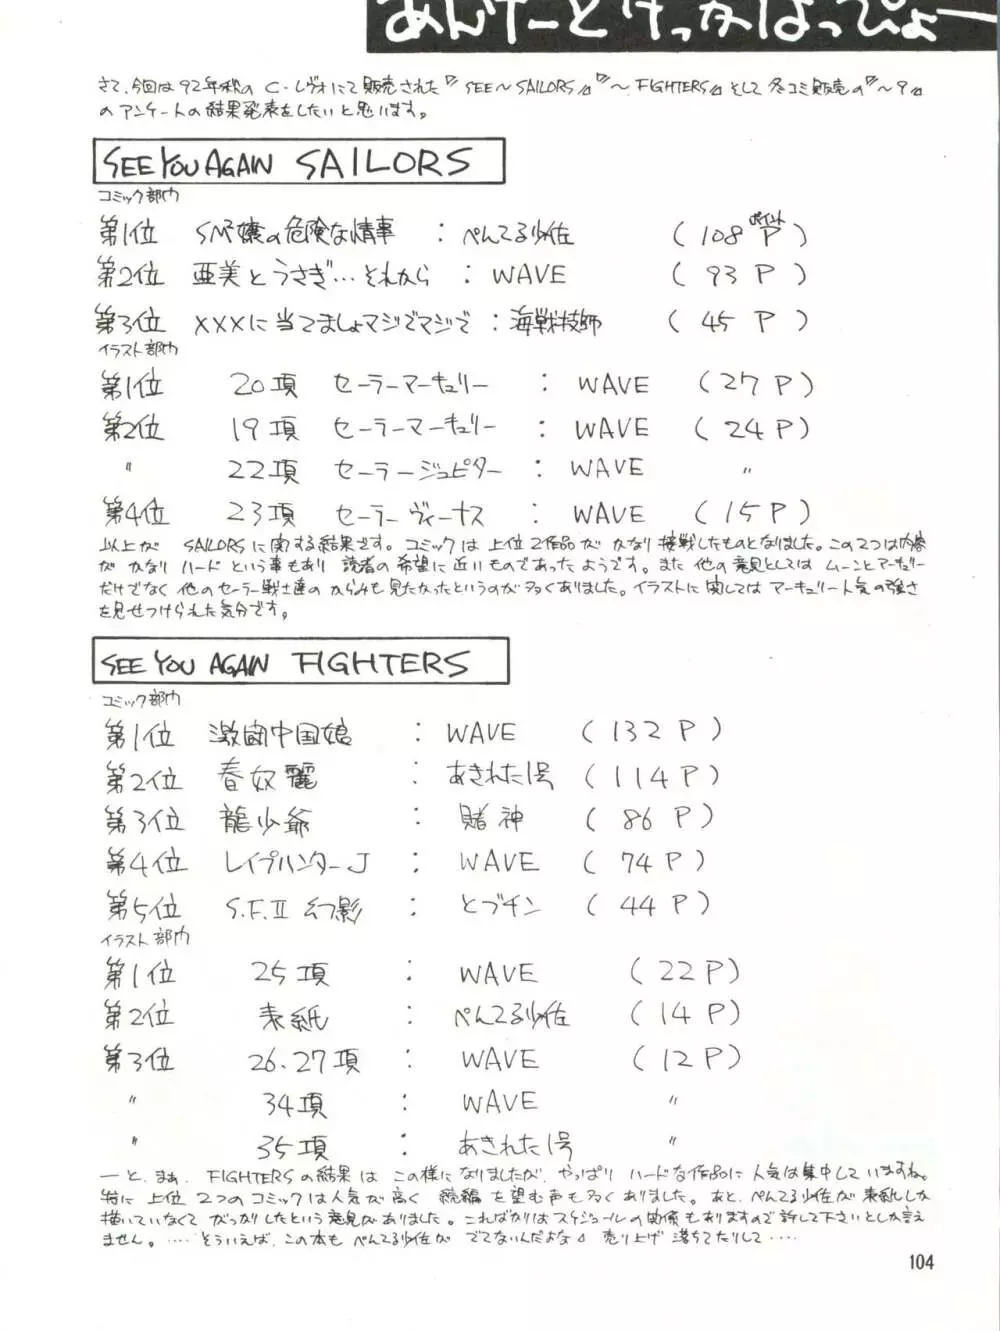 あんけーとけっかはっぴょー
さて、今回は92年秋の C・レヴォにて販売された『SEE〜SAILORS』『〜FIGHTERS』そして冬コミ販売の『〜9』
のアンケートの結果発表をしたいと思います。
SEE YOU AGAIN SAILORS
コミック部门
第1位 SM嬢の危険な情事 : ぺんてる少佐 (108 P) ポイント
第2位 亜美とうさぎ…それから : WAVE (93 P)
第3位 XXXに当てましょマジでマジで : 海戦技師 (45 P)
イラスト部门
第1位 20項 セーラーマーキュリー : WAVE (27 P)
第2位 19項 セーラーマーキュリー : WAVE (24 P)
〃 22項 セーラージュピター : WAVE 〃
第4位 23項 セーラーヴィーナス : WAVE (15 P)
以上が SAILORSに関する結果です。コミックは上位2作品がかなり接戦したものとなりました。この2つは内容
がかなりハードという事もあり 読者の希望に近いものであったようです。また他の意見としては ムーンとマーキュリー
だけでなく他のセーラー戦士達のからみも見たかったというのが多くありました。イラストに関してはマーキュリー人気の強さ
を見せつけられた気分です。
SEE YOU AGAIN FIGHTERS
コミック部门
第1位 激闘中国娘 : WAVE (132 P)
第2位 春奴麗 : あきれた1号 (114 P)
第3位 龍少爺 : 賭神 (86 P)
第4位 レイプハンターJ : WAVE (74 P)
第5位 S.F.II 幻影 : とブチン (44 P)
イラスト部门
第1位 25項 : WAVE (22 P)
第2位 表紙 : ぺんてる少佐 (14 P)
第3位 26.27項 : WAVE (12 P)
〃 34項 : WAVE 〃
〃 35項 : あきれた1号 〃
ーと、まぁ、FIGHTERSの結果はこの様になりましたが、やっぱりハードな作品に人気は集中していますね。
特に上位2つのコミックは人気が高く 続編を望む声も多くありました。あと、ぺんてる少佐が表紙しか
描いていなくてがっかりしたという意見がありました。こればかりはスケジュールの関係もありますので許して下さいとしか言え
ません。……そういえば、この本もぺんてる少佐がでてないんだよな 売り上げ落ちてたりして……
104